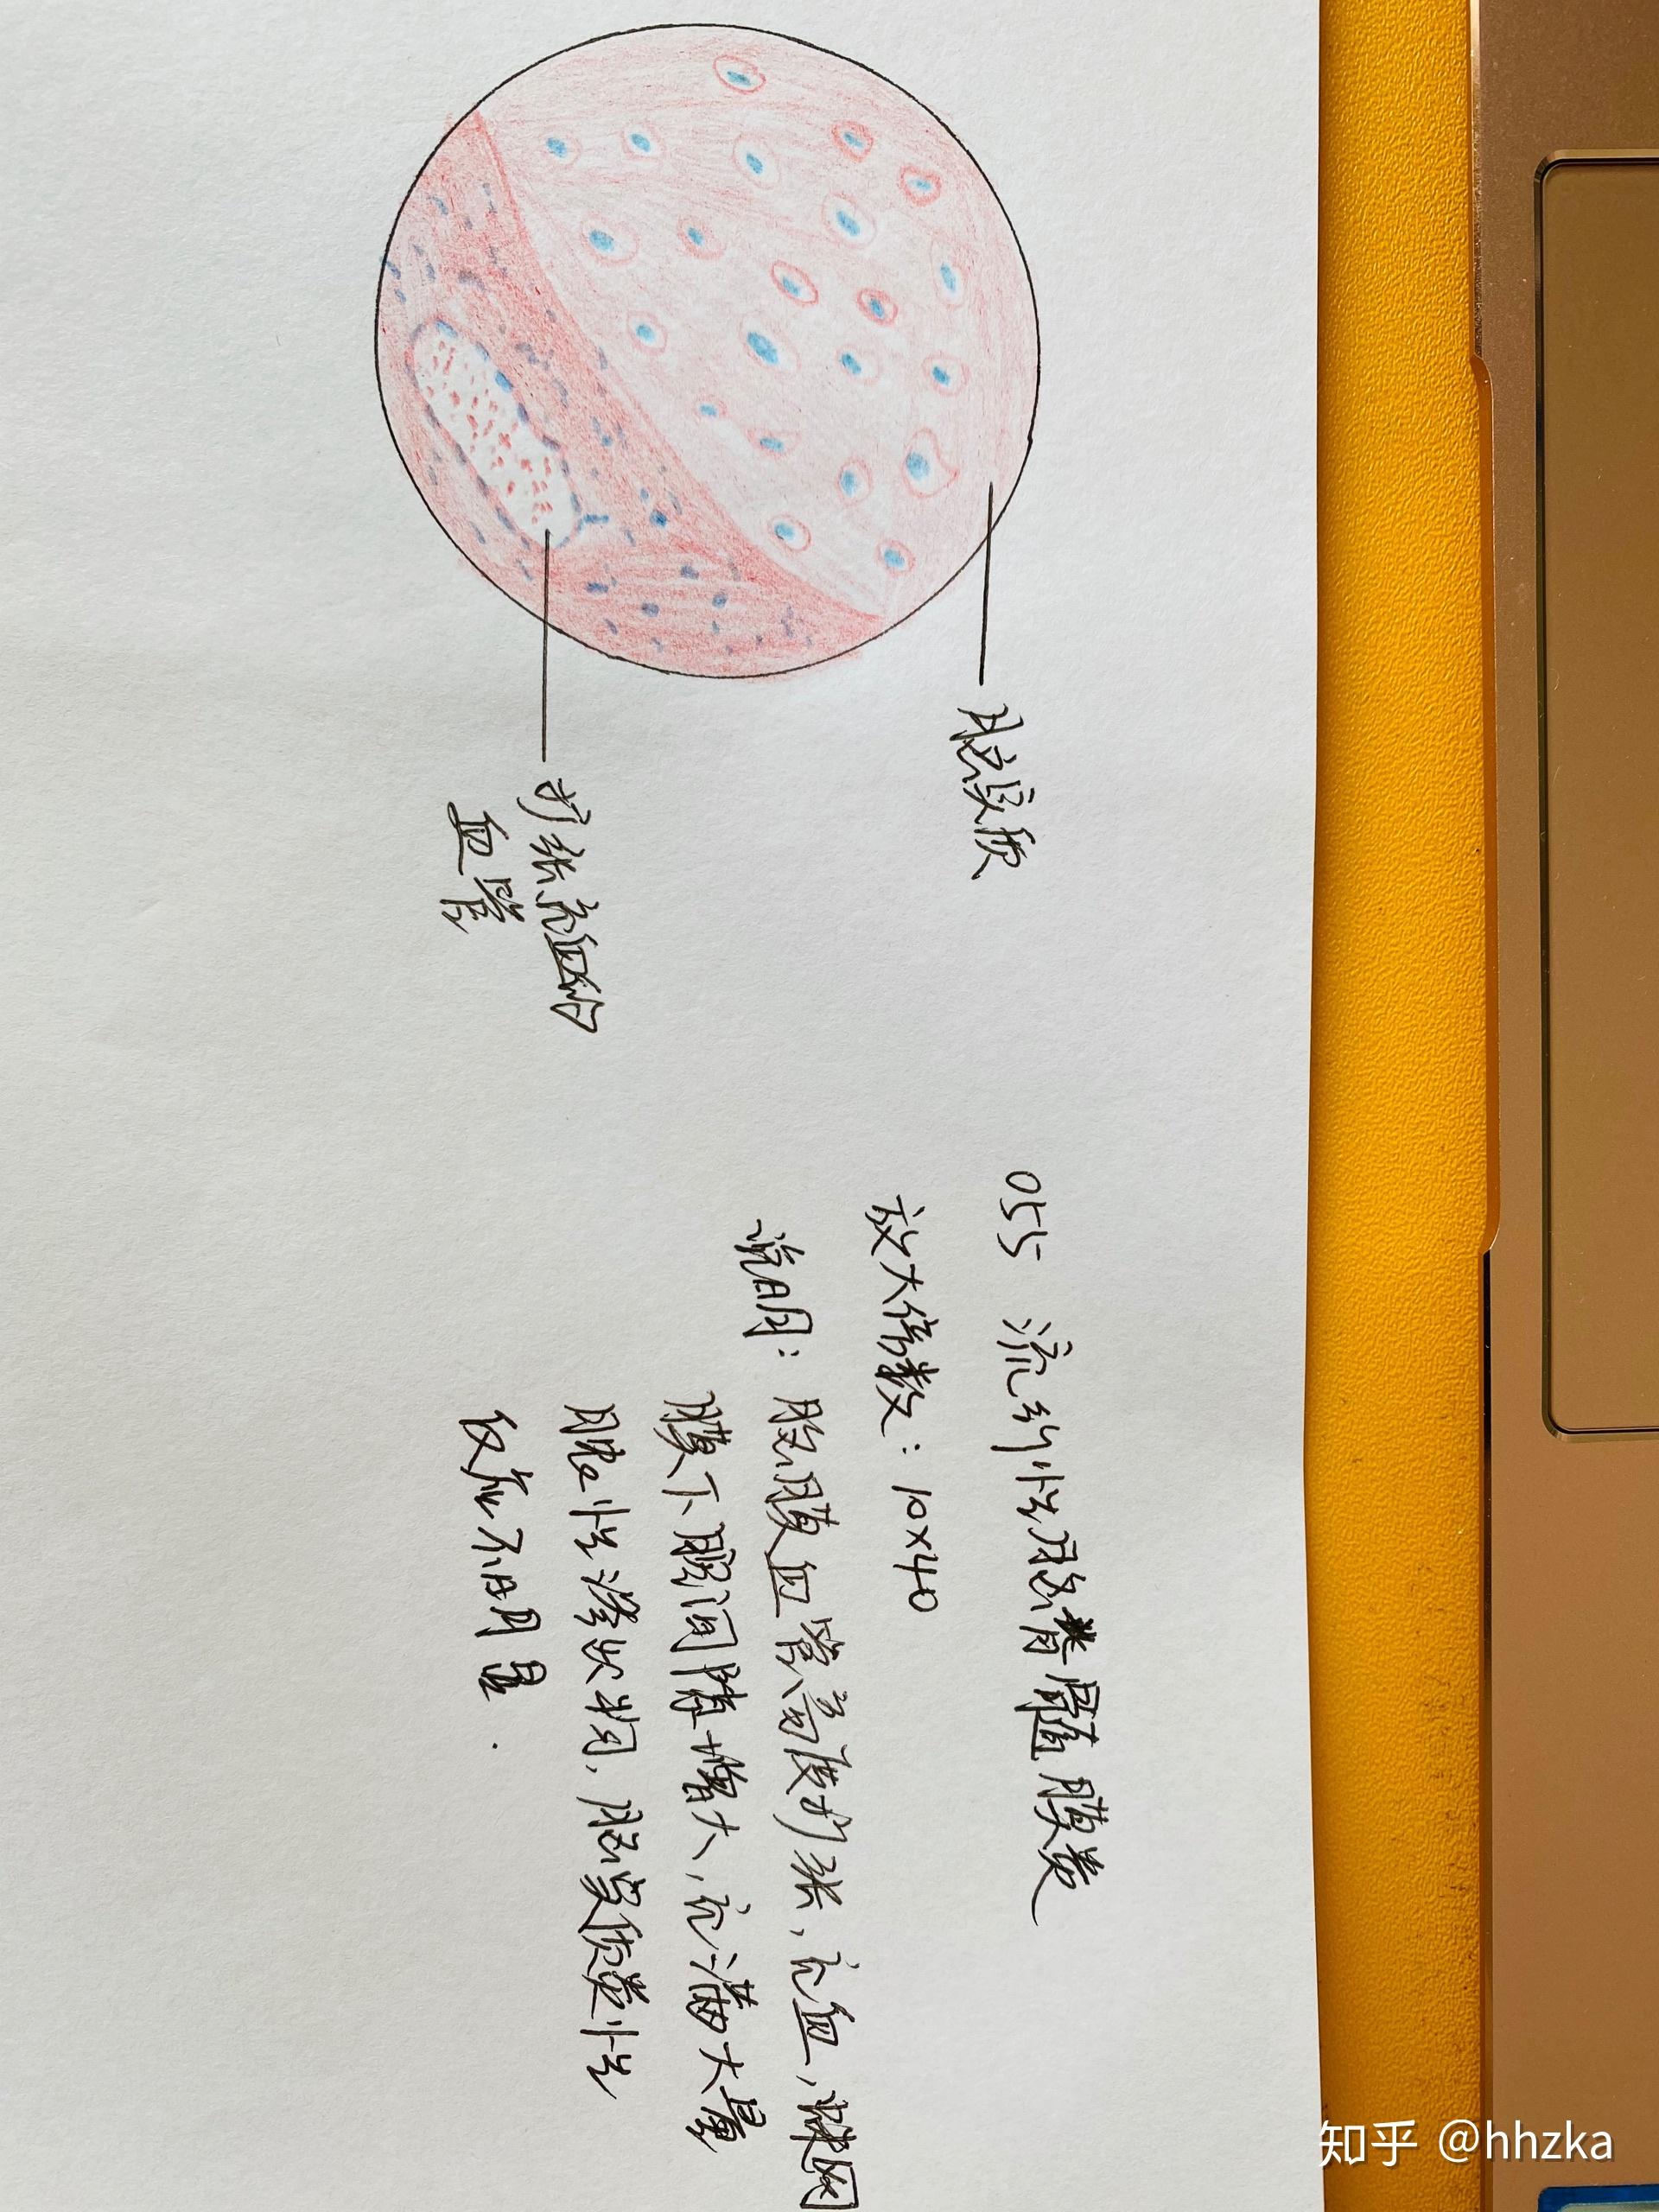 脑实质
扩张充血的
血管
055 流行性脑脊髓膜炎
放大倍数:10×40
说明:脑膜血管高度扩张,充血,蛛网
膜下腔间隙增大,充满大量
脓性渗出物,脑实质炎性
反应不明显.
知乎 @hhzka